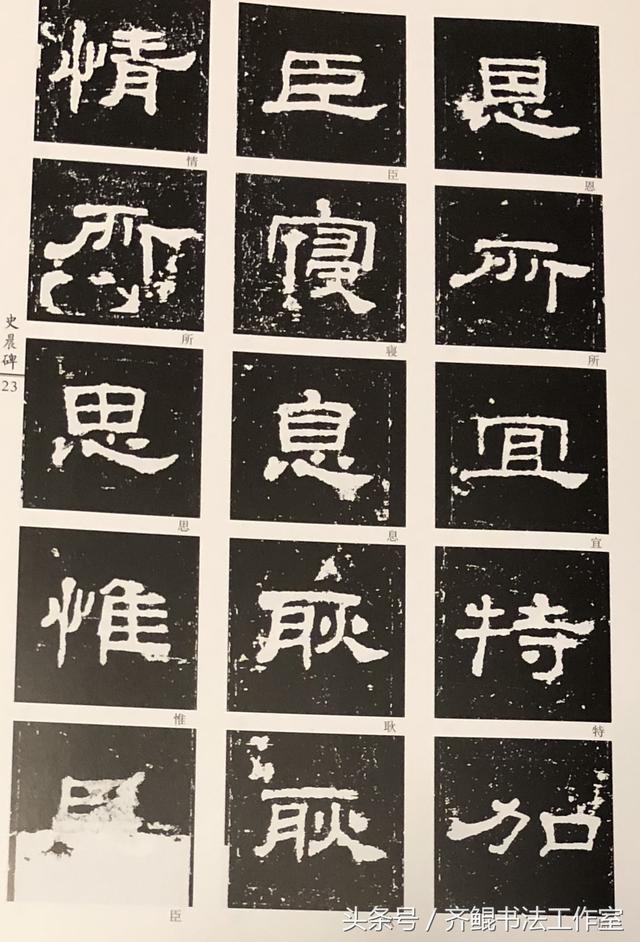 恩所宜特加
恩
所
宜
特
臣寝息耿耿
臣
寝
息
耿
情所思惟
情
所
思
惟
臣
史晨碑
23
头条号 / 齐鲲书法工作室